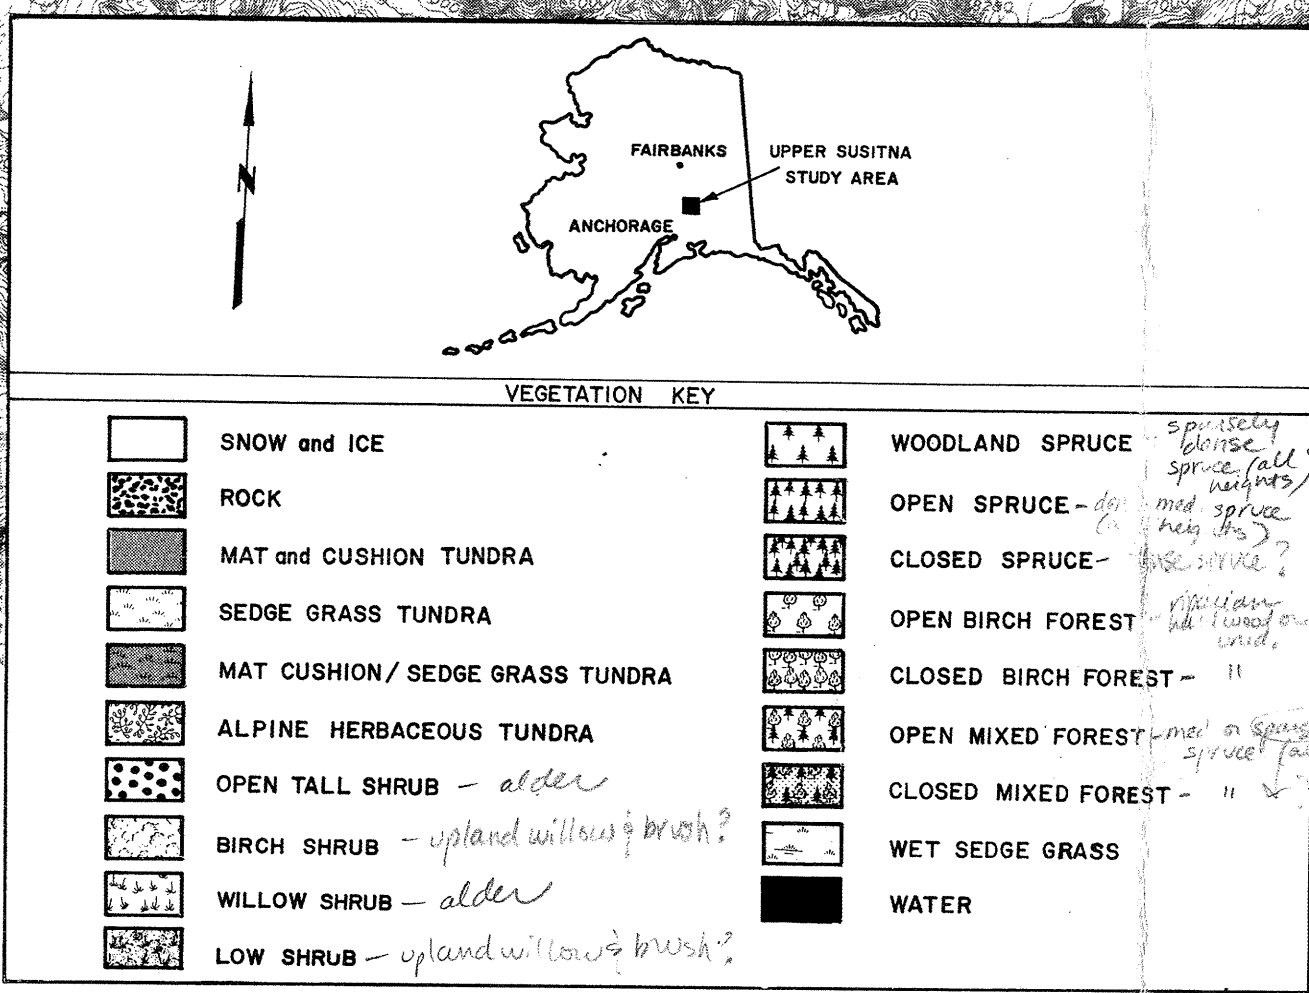 N
FAIRBANKS
UPPER SUSITNA
STUDY AREA
ANCHORAGE
VEGETATION KEY
SNOW and ICE
ROCK
MAT and CUSHION TUNDRA
SEDGE GRASS TUNDRA
MAT CUSHION / SEDGE GRASS TUNDRA
ALPINE HERBACEOUS TUNDRA
OPEN TALL SHRUB – alder
BIRCH SHRUB – upland willow & brush?
WILLOW SHRUB – alder
LOW SHRUB – upland willow & brush?
WOODLAND SPRUCE – sparsely
dense
spruce (all
heights)
OPEN SPRUCE – med. spruce
heights)
CLOSED SPRUCE – spruce?
OPEN BIRCH FOREST – riparian
hardwood or
CLOSED BIRCH FOREST – "
OPEN MIXED FOREST – med or
spruce
CLOSED MIXED FOREST – "
WET SEDGE GRASS
WATER